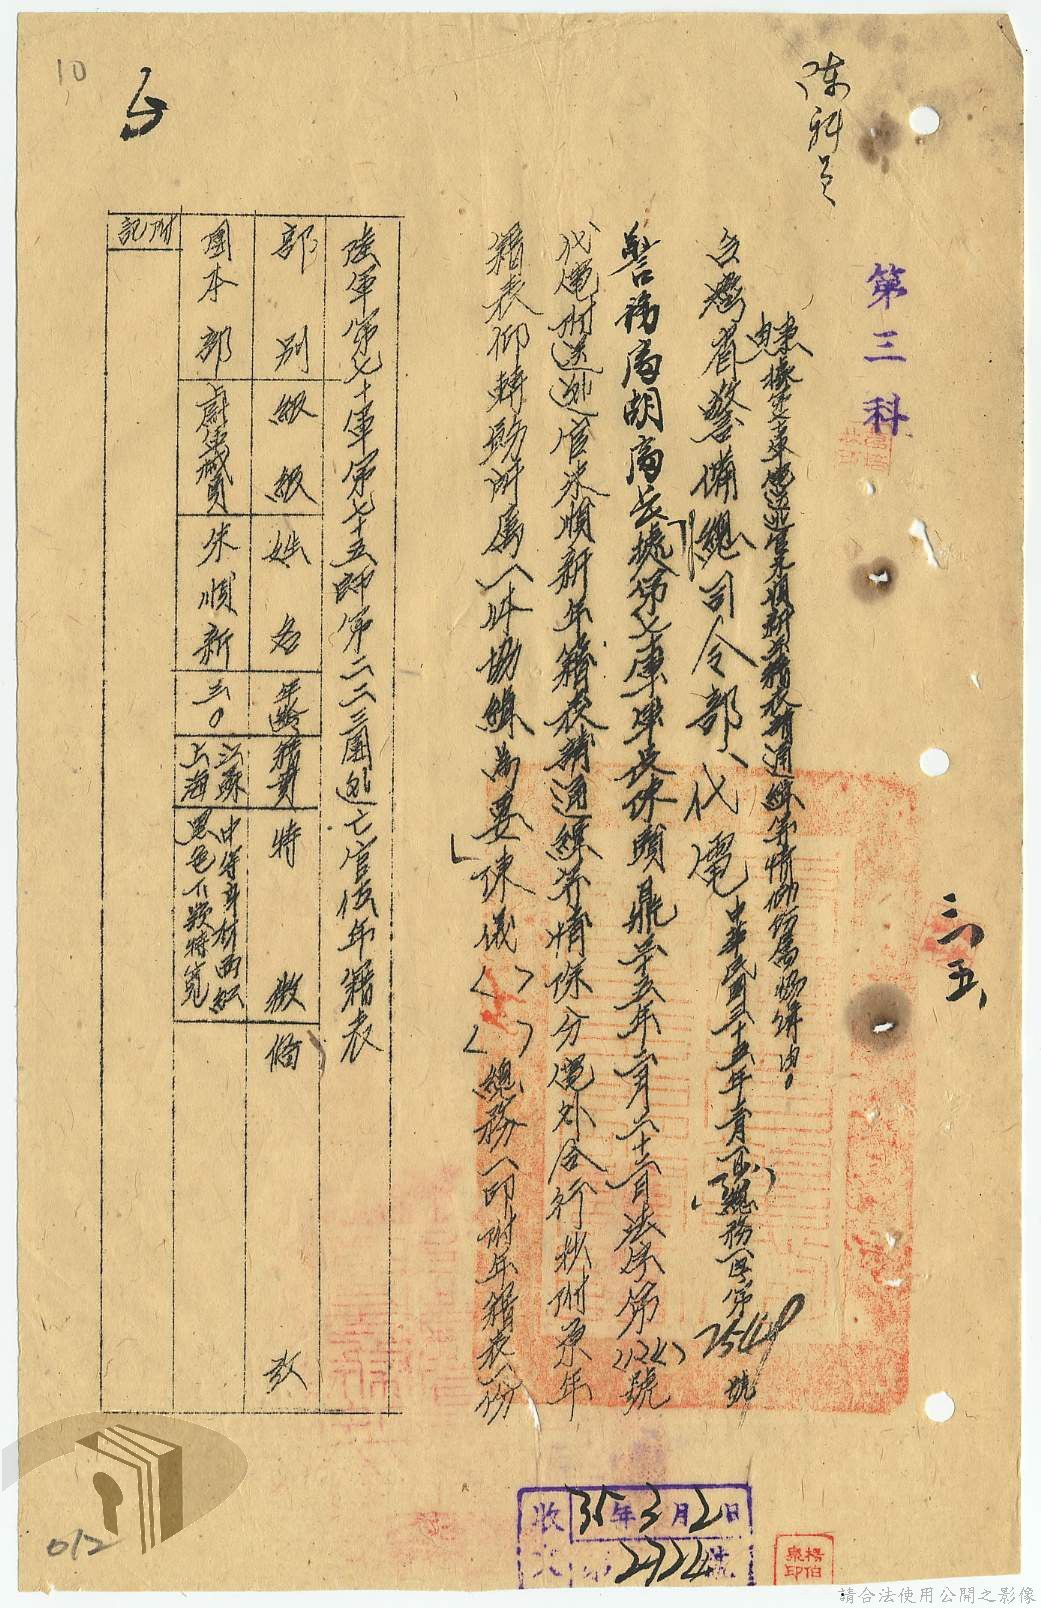 10
陳科員
第三科
三、五、
台灣省警備總司令部代電
中華民國三十五年 月 日 總務一字第 2548 號
警務局胡局長據第七十軍軍長陳頤鼎三十五年二月二十二日法字第 號
代電附送逃官朱順新年籍表請通緝等情除分電外合行抄附原年
籍表仰轉飭所屬一体協緝為要陳儀 總務一印附年籍表一份
陸軍第七十軍第七十五師第二二三團逃亡官伍年籍表
部別
級級
姓名
年齡
籍貫
特徵
備攷
團本部
上尉軍械員
朱順新
三〇
江蘇
上海
中等身材面紅
黑色下頦特寬
附記
收文
35年3月2日
第2724號
楊伯泉印
012
請合法使用公開之影像